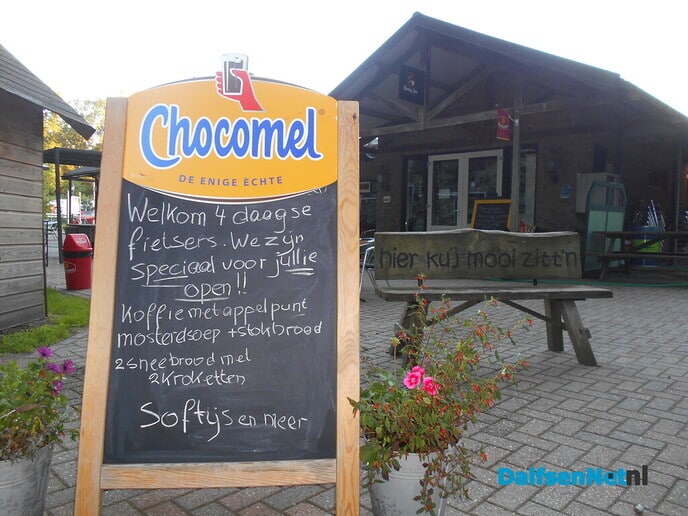 Chocomel®
DE ENIGE ECHTE
Welkom 4 daagse
fietsers. We zijn
speciaal voor jullie
open!!
Koffie met appelpunt
mosterdsoep + stokbrood
2 snee brood met
2 Kroketten
Softijs en meer
hier ku'j mooi zitt'n
DalfsenNet.nl